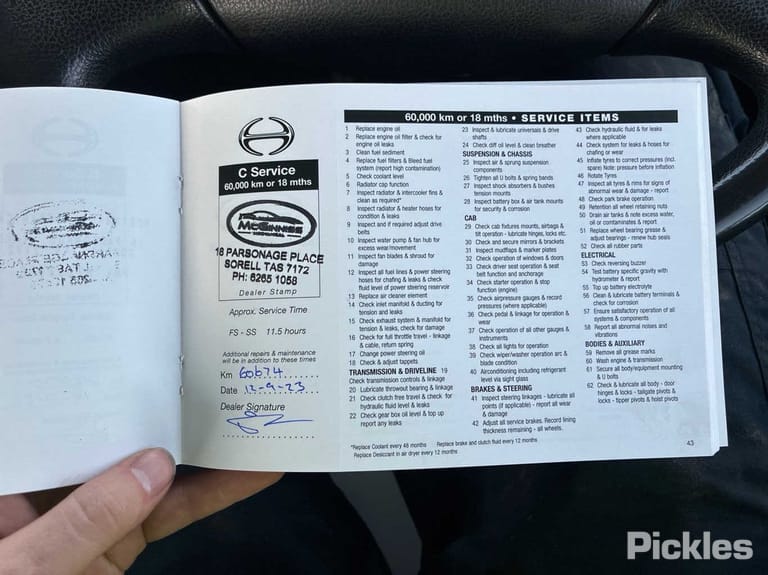 C Service
60,000 km or 18 mths
McGINNISS
18 PARSONAGE PLACE
SORELL TAS 7172
PH: 6265 1058
Dealer Stamp
Approx. Service Time
FS - SS 11.5 hours
Additional repairs & maintenance
will be in addition to these times
Km 60674
Date 12-9-23
Dealer Signature
60,000 km or 18 mths • SERVICE ITEMS
1 Replace engine oil
2 Replace engine oil filter & check for
engine oil leaks
3 Clean fuel sediment
4 Replace fuel filters & Bleed fuel
system (report high contamination)
5 Check coolant level
6 Radiator cap function
7 Inspect radiator & intercooler fins &
clean as required*
8 Inspect radiator & heater hoses for
condition & leaks
9 Inspect and if required adjust drive
belts
10 Inspect water pump & fan hub for
excess wear/movement
11 Inspect fan blades & shroud for
damage
12 Inspect all fuel lines & power steering
hoses for chafing & leaks & check
fluid level of power steering reservoir
13 Replace air cleaner element
14 Check inlet manifold & ducting for
tension and leaks
15 Check exhaust system & manifold for
tension & leaks, check for damage
16 Check for full throttle travel - linkage
& cable, return spring
17 Change power steering oil
18 Check & adjust tappets
TRANSMISSION & DRIVELINE 19
Check transmission controls & linkage
20 Lubricate throwout bearing & linkage
21 Check clutch free travel & check for
hydraulic fluid level & leaks
22 Check gear box oil level & top up
report any leaks
23 Inspect & lubricate universals & drive
shafts
24 Check diff oil level & clean breather
SUSPENSION & CHASSIS
25 Inspect air & sprung suspension
components
26 Tighten all U bolts & spring bands
27 Inspect shock absorbers & bushes
tension mounts
28 Inspect battery box & air tank mounts
for security & corrosion
CAB
29 Check cab fixtures mounts, airbags &
tilt operation - lubricate hinges, locks etc.
30 Check and secure mirrors & brackets
31 Inspect mudflaps & marker plates
32 Check operation of windows & doors
33 Check driver seat operation & seat
belt function and anchorage
34 Check starter operation & stop
function (engine)
35 Check airpressure gauges & record
pressures (where applicable)
36 Check pedal & linkage for operation &
wear
37 Check operation of all other gauges &
instruments
38 Check all lights for operation
39 Check wiper/washer operation arc &
blade condition
40 Airconditioning including refrigerant
level via sight glass
BRAKES & STEERING
41 Inspect steering linkages - lubricate all
points (if applicable) - report all wear
& damage
42 Adjust all service brakes. Record lining
thickness remaining - all wheels.
43 Check hydraulic fluid & for leaks
where applicable
44 Check system for leaks & hoses for
chafing or wear
45 Inflate tyres to correct pressures (incl.
spare) Note: pressure before inflation
46 Rotate Tyres
47 Inspect all tyres & rims for signs of
abnormal wear & damage - report
48 Check park brake operation
49 Retention all wheel retaining nuts
50 Drain air tanks & note excess water,
oil or contaminates & report
51 Replace wheel bearing grease &
adjust bearings - renew hub seals
52 Check all rubber parts
ELECTRICAL
53 Check reversing buzzer
54 Test battery specific gravity with
hydrometer & report
55 Top up battery electrolyte
56 Clean & lubricate battery terminals &
check for corrosion
57 Ensure satisfactory operation of all
systems & components
58 Report all abnormal noises and
vibrations
BODIES & AUXILIARY
59 Remove all grease marks
60 Wash engine & transmission
61 Secure all body/equipment mounting
& U bolts
62 Check & lubricate all body - door
hinges & locks - tailgate pivots &
locks - tipper pivots & hoist pivots
*Replace Coolant every 48 months Replace brake and clutch fluid every 12 months
Replace Desiccant in air dryer every 12 months
43
Pickles